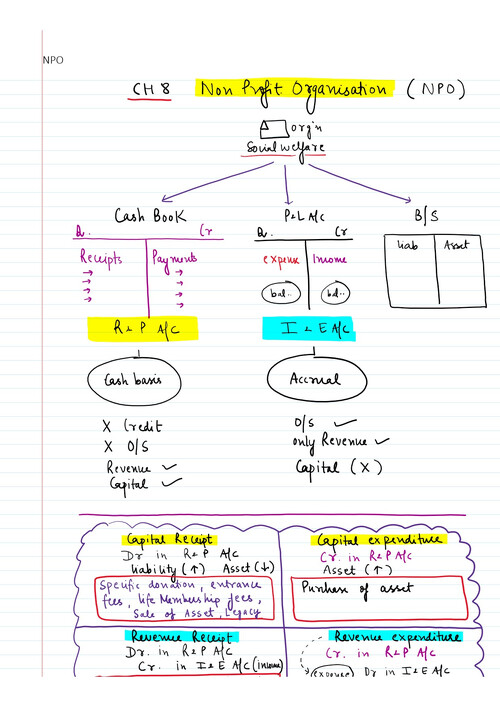 NPO
CH 8 Non Profit Organisation (NPO)
orgn
Social welfare
Cash Book
P&L A/c
B/S
Dr. Cr
Dr. Cr
Liab Asset
Receipts Payments
expense Income
bal.. bal..
R & P A/c
I & E A/c
Cash basis
Accrual
X Credit
X O/S
Revenue ✓
Capital ✓
O/S ✓
only Revenue ✓
Capital (X)
Capital Receipt
Dr in R & P A/c
liability (↑) Asset (↓)
Specific donation, entrance
fees, life Membership fees,
Sale of Asset, Legacy
Capital expenditure
Cr. in R & P A/c
Asset (↑)
Purchase of asset
Revenue Receipt
Dr. in R & P A/c
Cr. in I & E A/c (income)
Revenue expenditure
Cr. in R & P A/c
(expense) Dr in I & E A/c